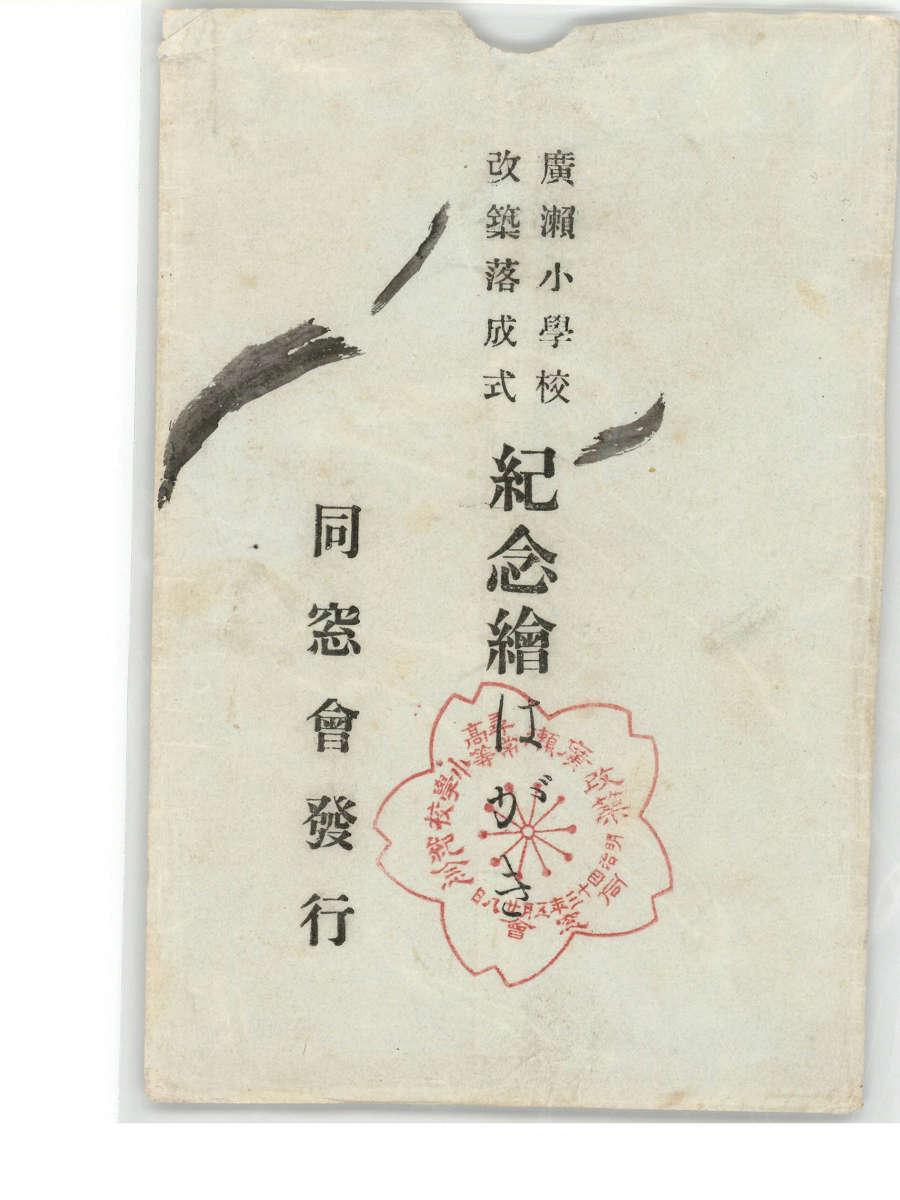 廣瀨小學校
改築落成式
紀念繪はがき
同窓會發行
廣瀨尋常高等小學校
改築
明治四十三年五月廿八日
同窓會